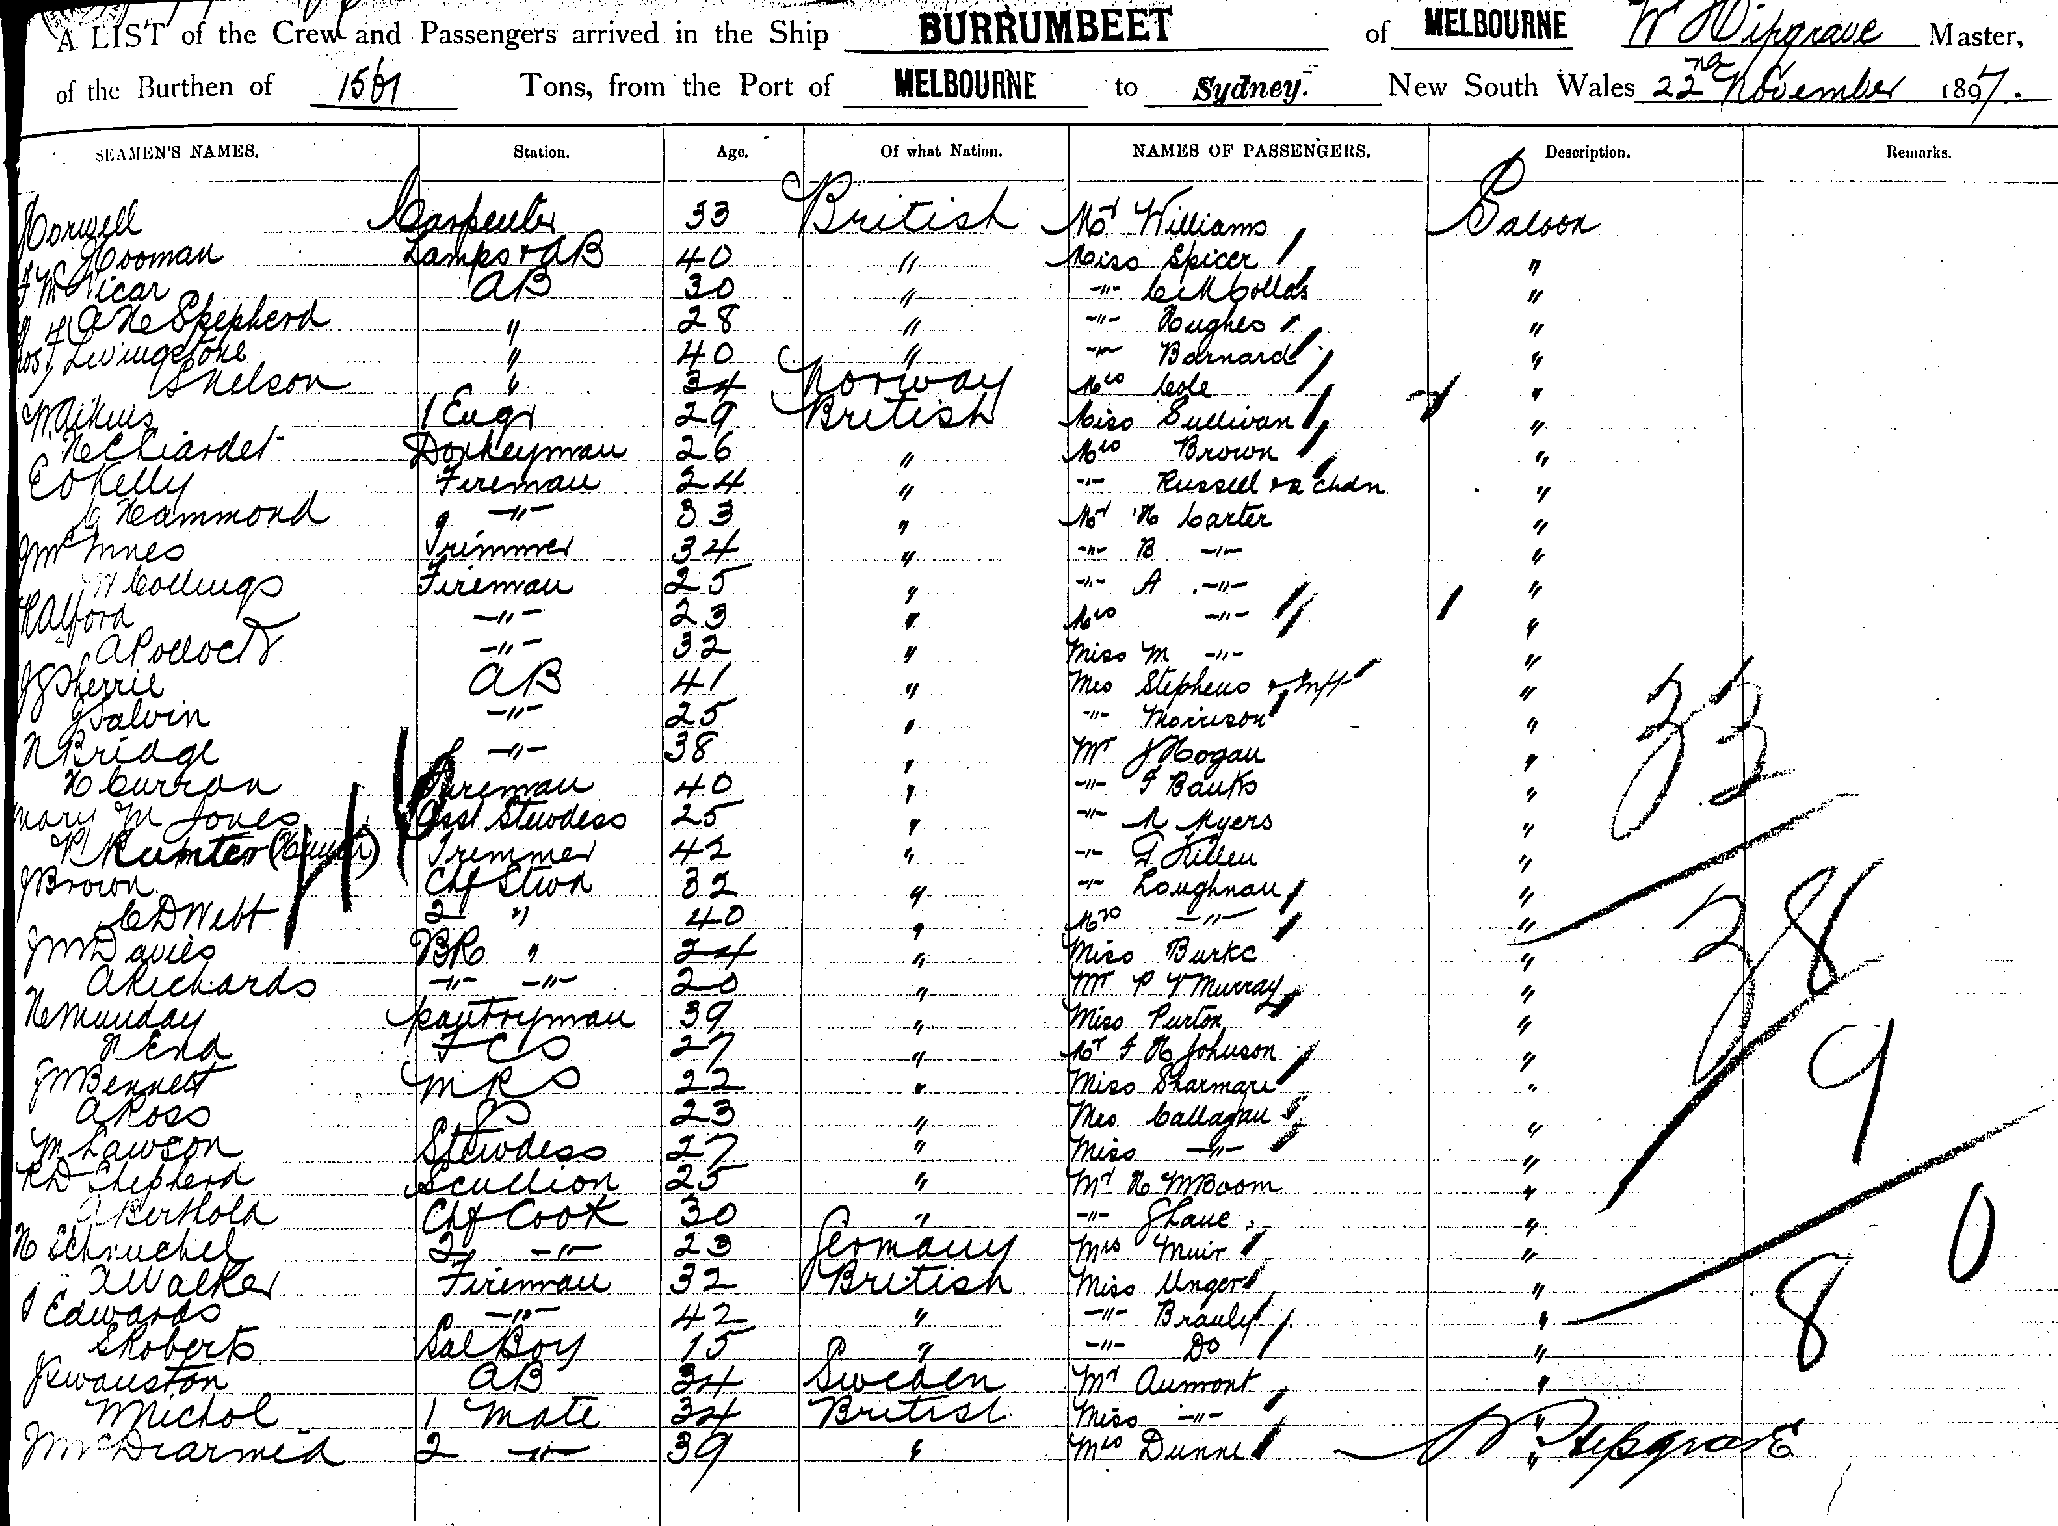 A LIST of the Crew and Passengers arrived in the Ship BURRUMBEET of MELBOURNE W Hipgrave Master,
of the Burthen of Tons, from the Port of MELBOURNE to Sydney. New South Wales 22nd November 1897.
SEAMEN'S NAMES. Station. Age. Of what Nation. NAMES OF PASSENGERS. Description. Remarks.
Horwell Carpenter 33 British Mr Williams Saloon
Hooman Lamps & AB 40 " Miss Spicer "
AB 30 " -"- "
Shepherd " 28 " -"- Hughes "
Livingstone " 40 " -"- Barnard "
Nelson " 34 Norway Mrs Cole "
1 Engr 29 British Miss Sullivan "
Donkeyman 26 " Mrs Brown "
E O'Kelly Fireman 24 " -"- Russell & 2 chdn "
Hammond -"- 33 " Mr H Carter "
J McInnes Trimmer 34 " -"- B -"- "
W Collings Fireman 25 " -"- A -"- "
Alford -"- 23 " Mrs -"- "
A Pollock -"- 32 " Miss M -"- "
Sherrie AB 41 " Mrs Stephens & Inft "
J Galvin -"- 25 " -"- Morrison "
H Bridge -"- 38 " Mr J Hogan "
H Curran Fireman 40 " -"- F Banks "
Mary M Jones Asst Stewdess 25 " -"- A Myers "
Trimmer 42 " -"- Killen "
J Brown Chf Stwd 32 " -"- Loughnan "
C D Webt 2 " 40 " Mrs -"- "
J W Davies BR " 24 " Miss Burke "
A Richards -"- -"- 20 " Mr P V Murray "
H Munday pantryman 39 " Miss Purton "
F C S 27 " Mr F H Johnson "
J M Bennett M R S 22 " Miss Sharmari "
A Ross S 23 " Mrs Callagan "
M Lawson Stewdess 27 " Miss -"- "
R D Shepherd Scullion 25 " Mr H McBoom "
A Berthold Chf Cook 30 " -"- J Lane "
2 -"- 23 Germany Mrs Muir "
Walker Fireman 32 British Miss Unger "
Edwards -"- 42 " -"- "
S Roberts Sal Boy 15 " -"- Do "
J Swanston AB 34 Sweden Mr Aumont "
W Nichol 1 Mate 34 British Miss -"- "
J McDiarmid 2 -"- 39 " Mrs Dunne "
W Hipgrave
33
38
9
80